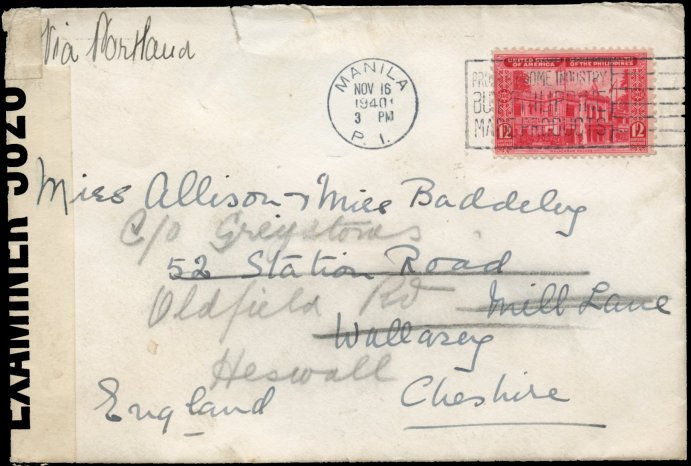 Via Portland
MANILA
NOV 16
1940
3 PM
P. I.
UNITED STATES
OF AMERICA
OF THE PHILIPPINES
HOME INDUSTRY
PRODUCTS
12 12
EXAMINER
Miss Allison & Miss Baddeley
C/o Greystones
52 Station Road
Oldfield Rd Mill Lane
Wallasey
Heswall
England Cheshire